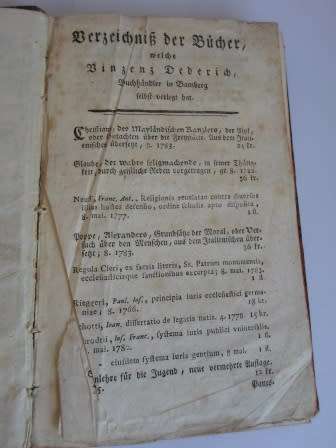 Verzeichniß der Bücher,
welche
Vinzenz Dederich,
Buchhändler in Bamberg
selbst verlegt hat.
Christiani des Mayländischen Kanzlers, der
oder Gutachten über die Freymäur. Aus dem Itali-
enischen übersetzt, 8. 1783. kr.
Glaube, der wahre seligmachende, in seiner Thätig-
keit, durch geistliche Reden vorgetragen, gr. 8.
36 kr.
Franc. Ant. Religionis revelatae contra diversos
illius hostes defensio, ordine scholis apto disposita,
8. mai. 1777. 1 fl.
Poppe, Alexanders, Grundsätze der Moral, oder Ver-
such über den Menschen, aus dem Italiänischen über-
setzt, 8. 1783. 36 kr.
Regula Cleri, ex sacris literis, Ss. Patrum monumentis,
ecclesiasticisque sanctionibus excerpta; 8. mai. 1783.
1 fl.
Rieggeri, Paul. Ios. principia iuris ecclesiastici germa-
niae; 8. 1766. 18 kr.
Ioan. dissertatio de legatis natis. 4. 1778. 15 kr.
Ios. Franc. systema iuris publici universalis.
mai. 1780. 1 fl.
eiusdem systema iuris gentium, 8 mai. 1 fl.
für die Jugend, neue vermehrte Auflage.
12 kr.